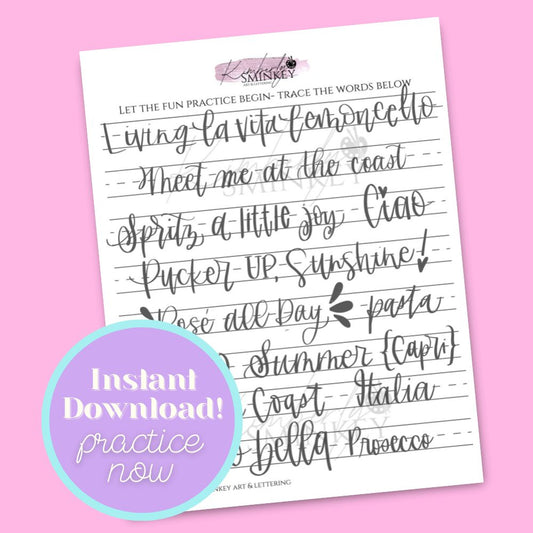 Kimberly
SMINKEY
ART & LETTERING
LET THE FUN PRACTICE BEGIN- TRACE THE WORDS BELOW
Living la vita lemoncello
Meet me at the coast
Spritz a little joy Ciao
Pucker UP, Sunshine!
Rosé all Day pasta
Summer {Capri}
Coast Italia
bella Prosecco
SMINKEY
ART & LETTERING
Instant
Download!
practice
now